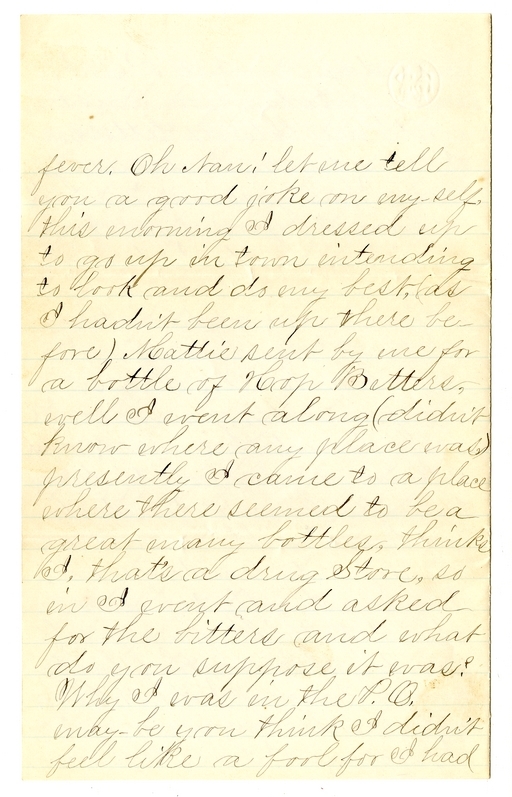 fever. Oh Nan! let me tell
you a good joke on my-self
this morning I dressed up
to go up in town intending
to look and do my best, (as
I hadn't been up there be-
fore) Mattie sent by me for
a bottle of Hop Bitters,
well I went along (didn't
know where any place was)
presently I came to a place
where there seemed to be a
great many bottles, thinks
I, that's a drug Store, so
in I went and asked
for the bitters and what
do you suppose it was?
Why I was in the P. O.
may-be you think I didn't
feel like a fool for I had